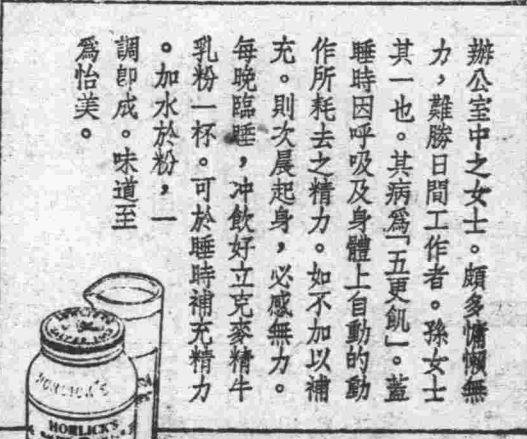 辦公室中之女士。頗多慵懶無
力，難勝日間工作者。孫女士
其一也。其病爲「五更飢」。蓋
睡時因呼吸及身體上自動的動
作所耗去之精力。如不加以補
充。則次晨起身，必感無力。
每晚臨睡，冲飲好立克麥精牛
乳粉一杯。可於睡時補充精力
。加水於粉，一
調卽成。味道至
爲怡美。
HORLICK'S
HORLICK'S